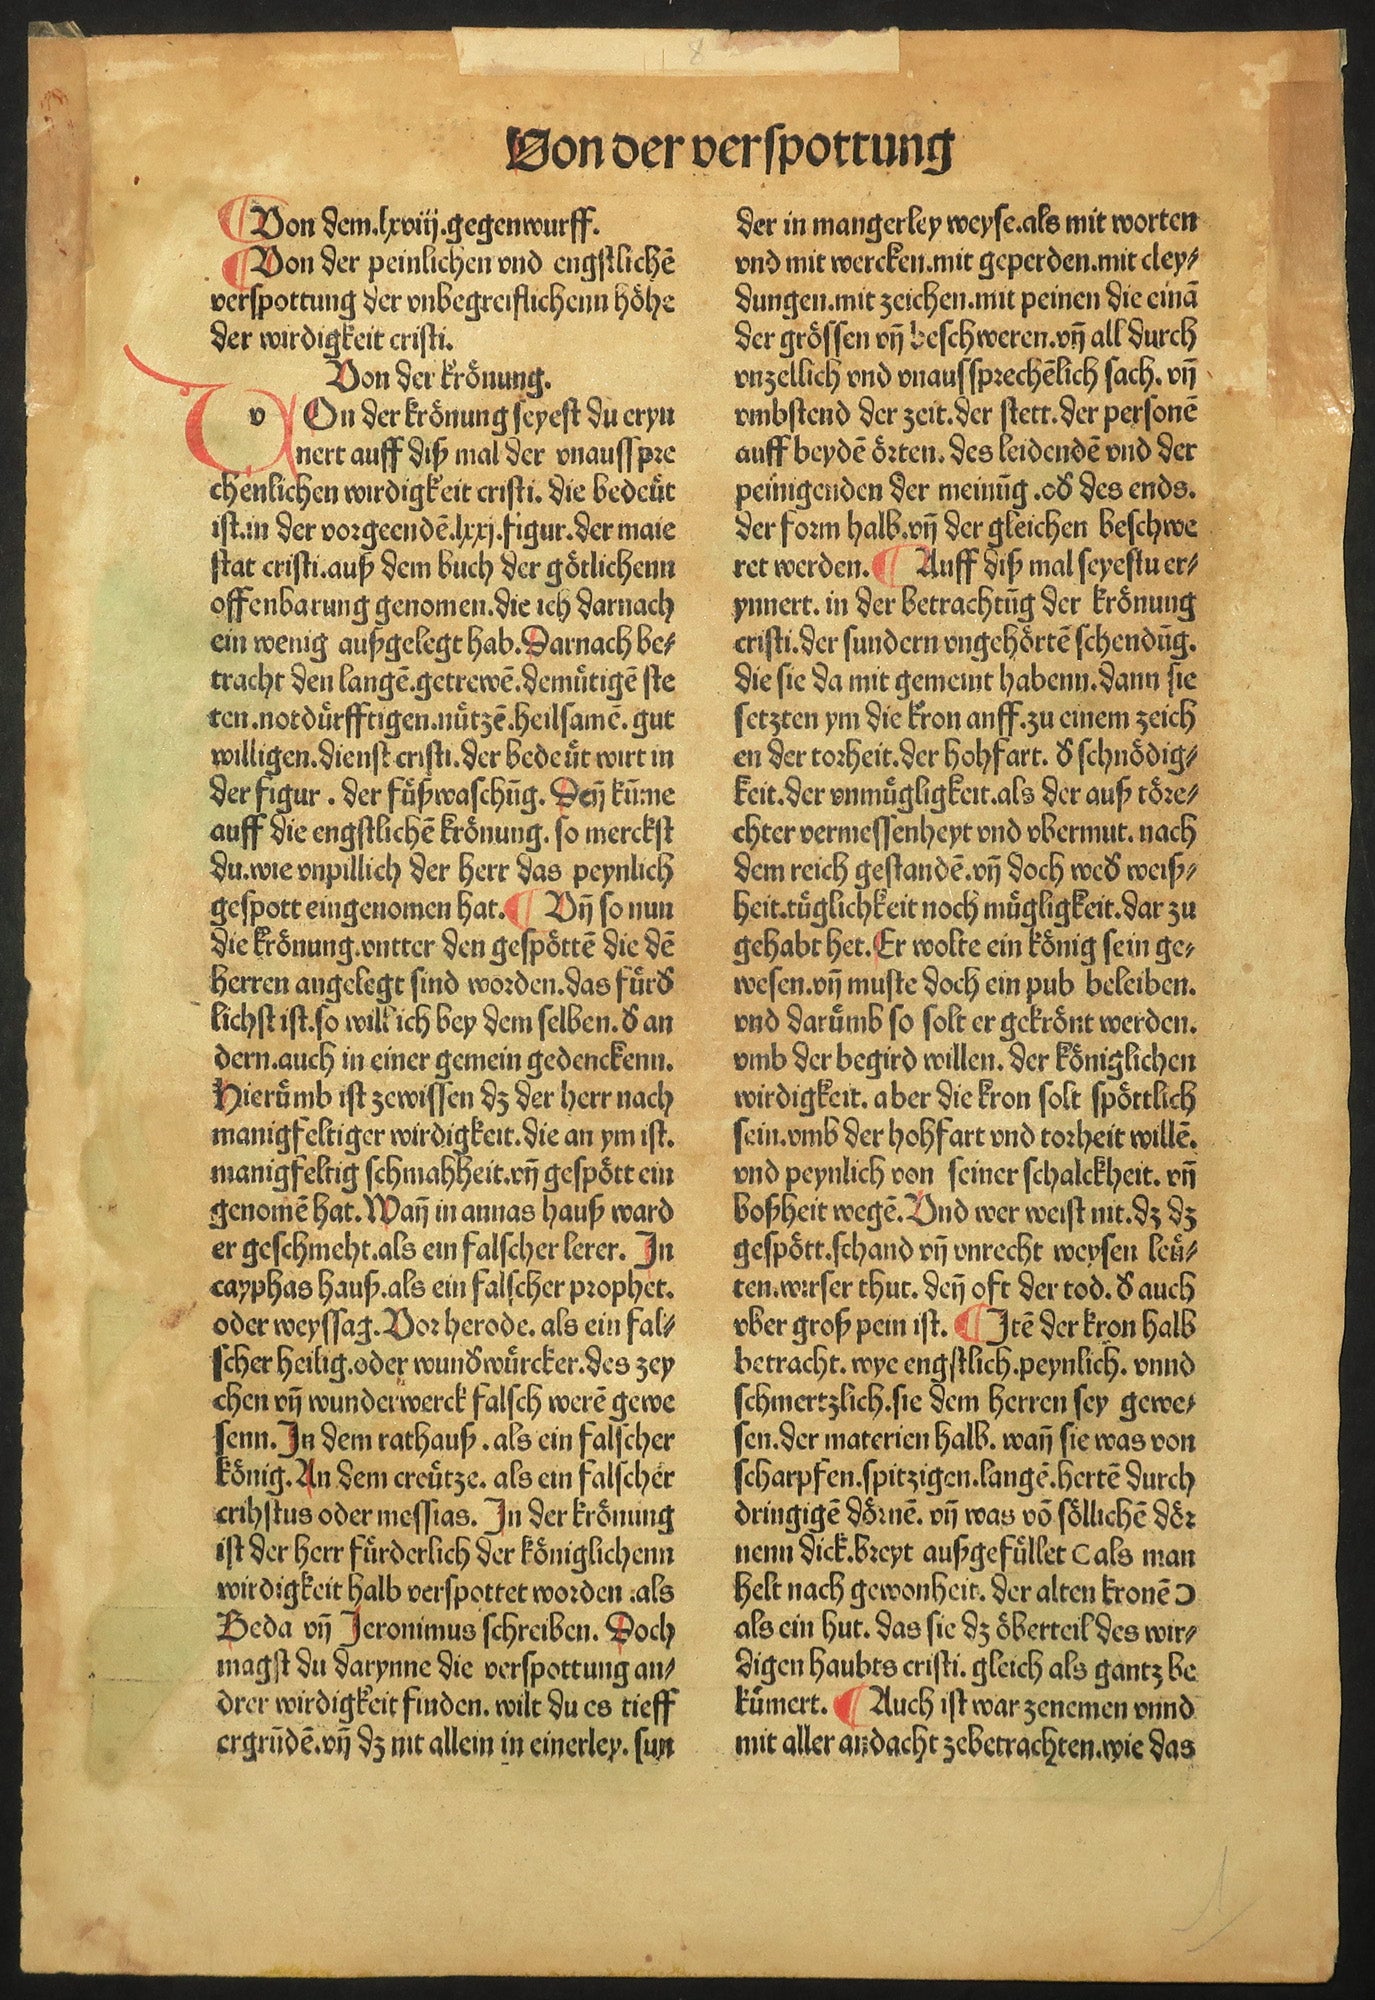 Von der verspottung
Von dem.lxviij.gegenwurff.
Von der peinlichen vnd engstlichē
verspottung der vnbegreiflichenn höhe
der wirdigkeit cristi.
Von der krönung.
v On der krönung seyest du eryn
nert auff diß mal der vnausspre
chenlichen wirdigkeit cristi. die bedeüt
ist.in der vorgeendē.lxxj.figur.der maie
stat cristi.auß dem buch der götlichenn
offenbarung genomen.die ich darnach
ein wenig außgelegt hab.Darnach be⸗
tracht den langē.getrewē.demütigē ste
ten.notdürfftigen.nützē.heilsamē.gut
willigen.dienst cristi.der bedeüt wirt in
der figur . der füßwaschūg. Deñ kūme
auff die engstlichē krönung. so merckst
du.wie vnpillich der herr das peynlich
gespott eingenomen hat. Vñ so nun
die krönung.vntter den gespöttē die dē
herren angelegt sind worden.das fürd̕
lichst ist.so will ich bey dem selben.d̕ an
dern.auch in einer gemein gedenckenn.
Hierümb ist zewissen dz der herr nach
manigfeltiger wirdigkeit.die an ym ist.
manigfeltig schmahheit.vñ gespött ein
genomē hat. Wañ in annas hauß ward
er geschmeht.als ein falscher lerer. In
cayphas hauß.als ein falscher prophet.
oder weyssag. Vor herode. als ein fal⸗
scher heilig.oder wund̕würcker.des zey
chen vñ wunderwerck falsch werē gewe
senn. In dem rathauß . als ein falscher
könig. An dem creütze. als ein falscher
crihstus oder messias. In der krönung
ist der herr fürderlich der königlichenn
wirdigkeit halb verspottet worden .als
Beda vñ Jeronimus schreiben. Doch
magst du darynne die verspottung an⸗
drer wirdigkeit finden. wilt du es tieff
ergründē.vñ dz nit allein in einerley. sun
der in mangerley weyse.als mit worten
vnd mit wercken.mit geperden.mit cley⸗
dungen.mit zeichen.mit peinen die einā
der grössen vñ beschweren.vñ all durch
vnzellich vnd vnaussprechēlich sach. vñ
vmbstend der zeit.der stett.der personē
auff beydē örten. des leidendē vnd der
peinigenden der meinūg .od̕ des ends.
der form halb.vñ der gleichen beschwe
ret werden. Auff diß mal seyestu er⸗
ynnert. in der betrachtūg der krönung
cristi.der sundern vngehörtē schendūg.
die sie da mit gemeint habenn.dann sie
setzten ym die kron anff.zu einem zeich
en der torheit.der hohfart. d̕ schnödig⸗
keit.der vnmügligkeit.als der auß töre⸗
chter vermessenheyt vnd vbermut. nach
dem reich gestandē.vñ doch wed̕ weiß⸗
heit.tüglichkeit noch mügligkeit.dar zu
gehabt het. Er wolte ein könig sein ge⸗
wesen.vñ muste doch ein pub beleiben.
vnd darümb so solt er gekrönt werden.
vmb der begird willen. der königlichen
wirdigkeit. aber die kron solt spöttlich
sein.vmb der hohfart vnd torheit willē.
vnd peynlich von seiner schalckheit. vñ
boßheit wegē. Vnd wer weist nit. dz dz
gespött.schand vñ vnrecht weysen leü⸗
ten.wirser thut. deñ oft der tod. d̕ auch
vber groß pein ist. Itē der kron halb
betracht. wye engstlich.peynlich. vnnd
schmertzlich.sie dem herren sey gewe⸗
sen.der materien halb. wañ sie was von
scharpfen.spitzigen.langē.hertē durch
dringigē dörnē. vñ was vō söllichē dör
nenn dick.breyt außgefüllet ( als man
helt nach gewonheit. der alten kronē )
als ein hut. das sie dz öberteil des wir⸗
digen haubts cristi. gleich als gantz be
kümert. Auch ist war zenemen vnnd
mit aller andacht zebetrachten.wie das